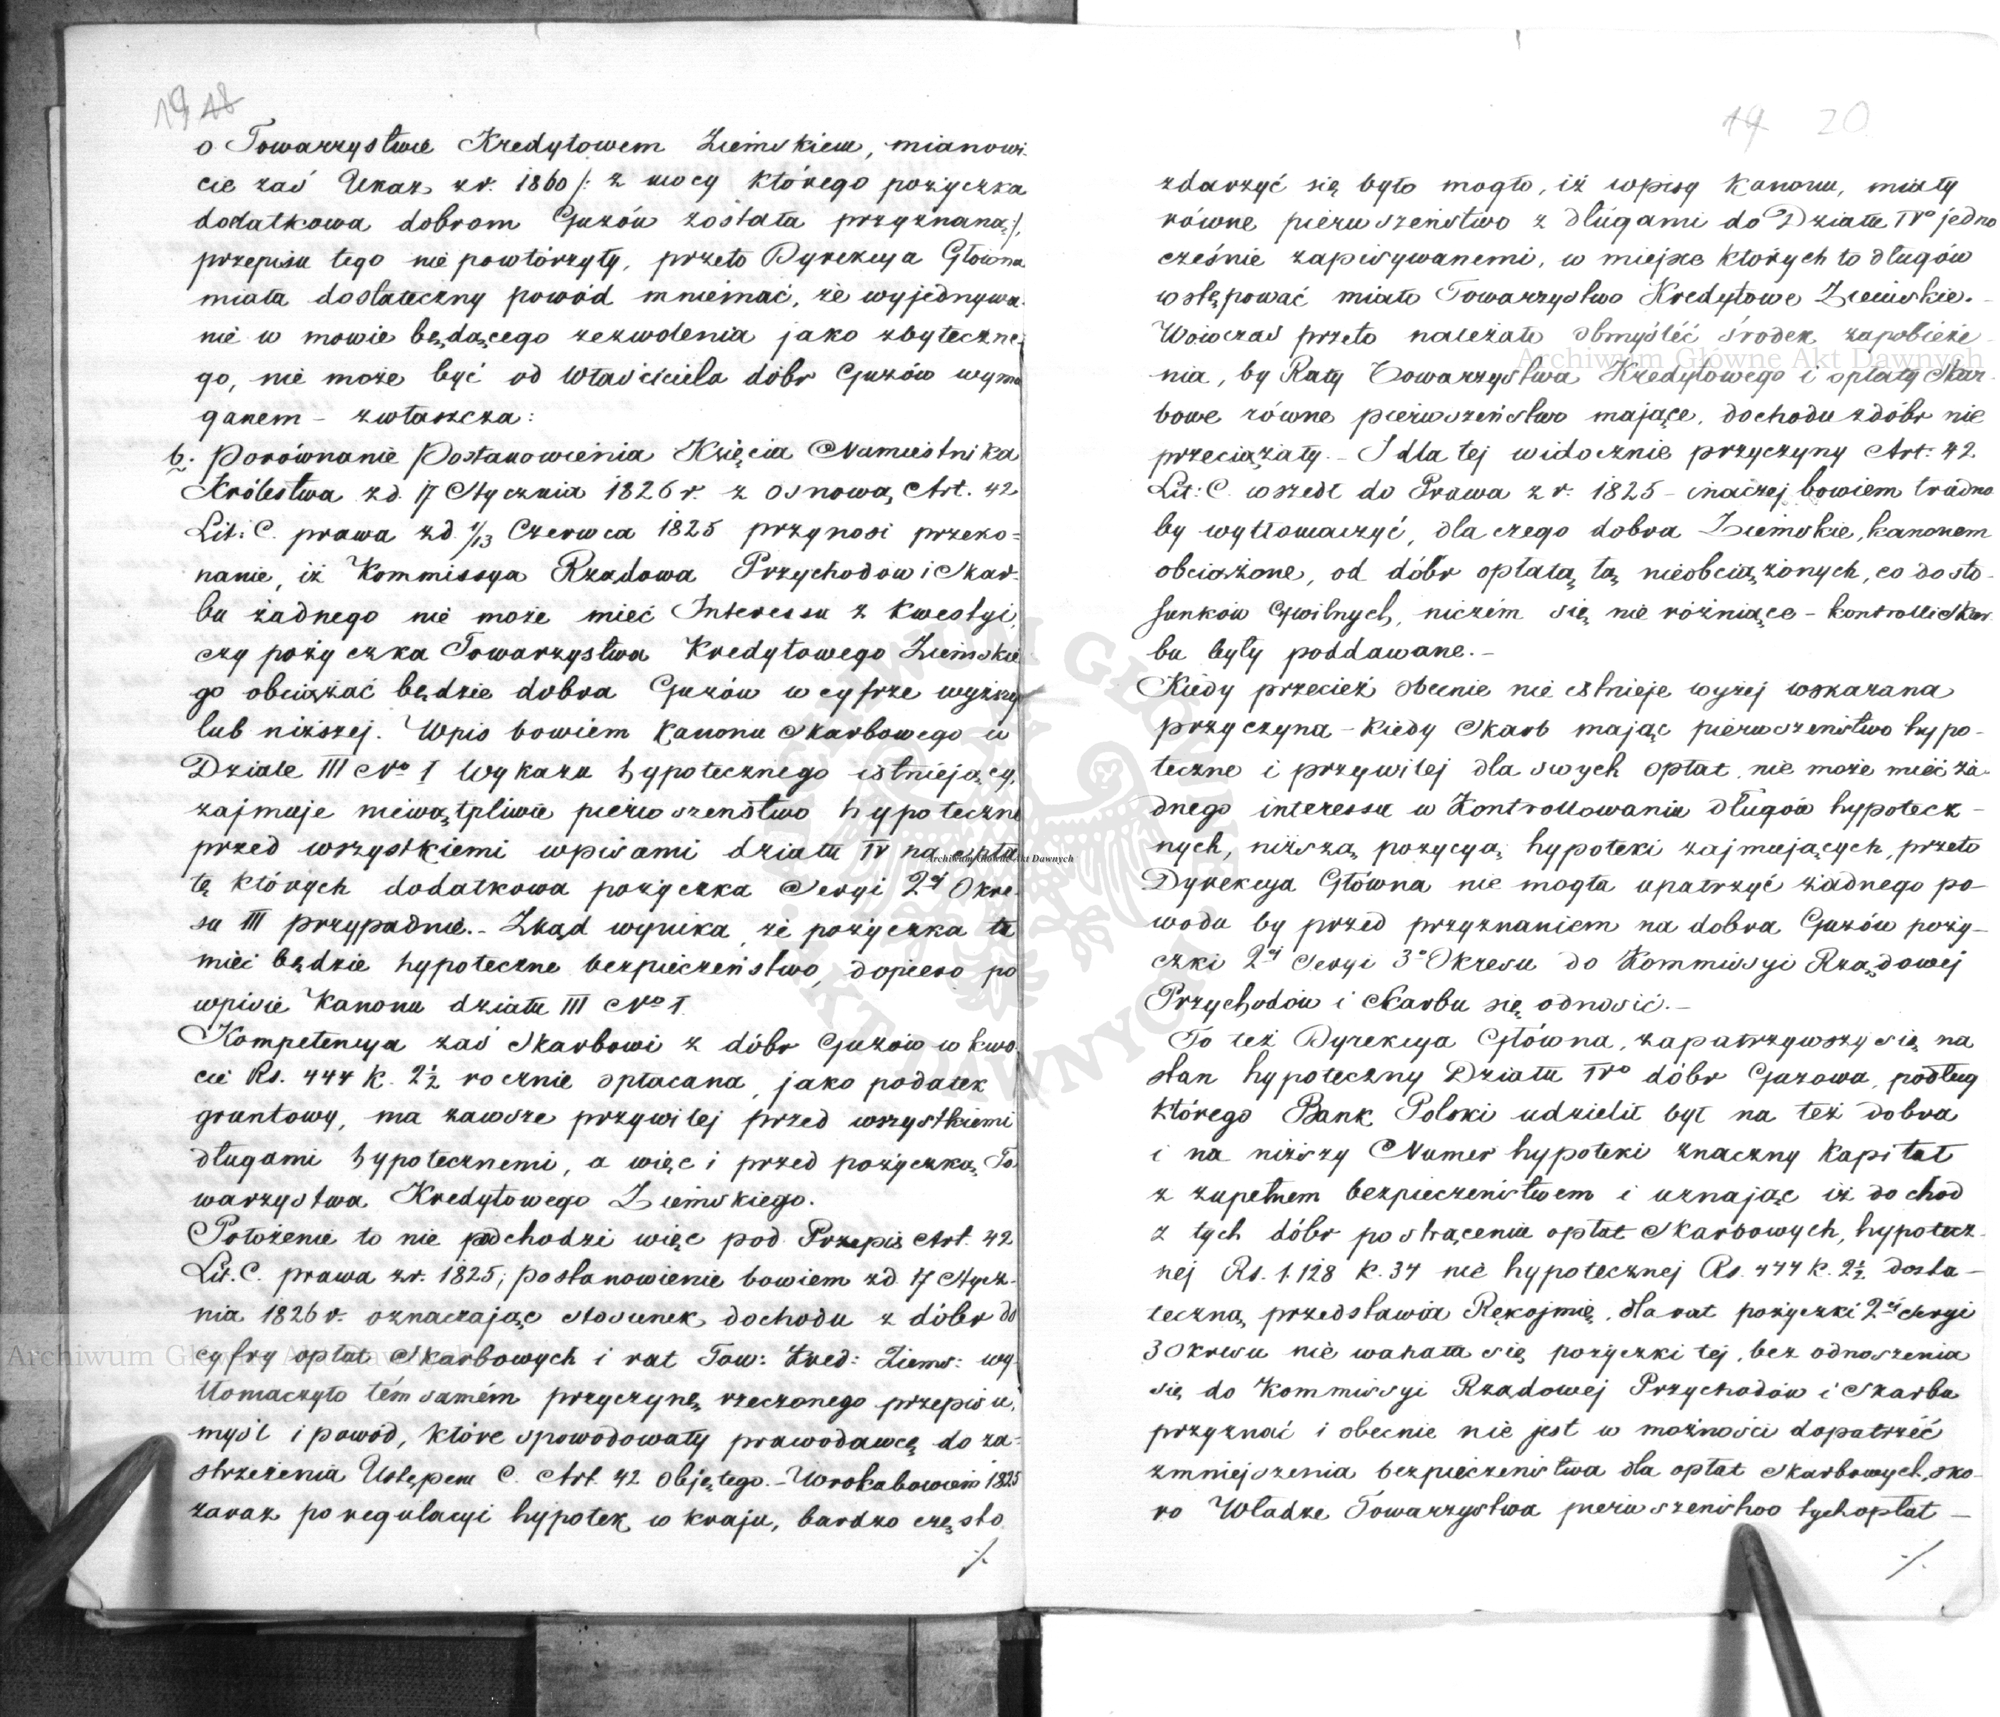 19 18
o Towarzystwie Kredytowem Ziemskiem, mianowi-
cie zaś Ukaz z r. 1860 /: z mocy którego pożyczka
dodatkowa dobrom Guzów została przyznaną :/,
przepisu tego nie powtórzyły, przeto Dyrekcya Główna
miała dostateczny powód mniemać, że wyjednywa-
nie w mowie będącego zezwolenia jako zbyteczne-
go, nie może być od Właściciela dóbr Guzów wyma
ganem – zwłaszcza:
b. Porównanie Postanowienia Księcia Namiestnika
Królestwa z d. 17 Stycznia 1826 r. z osnową Art. 42
Lit: C. prawa z d. 1/13 Czerwca 1825 przynosi przeko=
nanie, iż Kommissya Rządowa Przychodów i Skar-
bu żadnego nie może mieć Interessu z kwestyi,
czy pożyczka Towarzystwa Kredytowego Ziemskie
go obciążać będzie dobra Guzów w cyfrze wyższej
lub niższej. Wpis bowiem Kanonu Skarbowego w
Dziale III No I Wykazu hypotecznego istniejący,
zajmuje niewątpliwie pierwszeństwo hypoteczne
przed wszystkiemi wpisami działu IV na spła
tę których dodatkowa pożyczka Seryi 2ej Okre-
su III przypadnie. – Zkąd wynika, że pożyczka ta
mieć będzie hypoteczne bezpieczeństwo, dopiero po
wpisie Kanonu działu III No I.
Kompetencya zaś Skarbowi z dóbr Guzów w kwo
cie Rs. 444 k. 2½ rocznie opłacana, jako podatek
gruntowy, ma zawsze przywilej przed wszystkiemi
długami hypotecznemi, a więc i przed pożyczką To
warzystwa Kredytowego Ziemskiego.
Położenie to nie podchodzi więc pod Przepis Art. 42
Lit. C. prawa z r. 1825; postanowienie bowiem z d. 17 Stycz-
nia 1826 r. oznaczając stosunek dochodu z dóbr do
cyfry opłat Skarbowych i rat Tow: Kred: Ziems: wy-
tłomaczyło tém samém przyczynę rzeczonego przepisu,
myśl i powód, które spowodowały prawodawcę do za=
strzeżenia Ustępem C. Art. 42 objętego. – W roku bowiem 1825
zaraz po regulacyi hypotek w kraju, bardzo często
./.
19 20
zdarzyć się było mogło, iż wpisy Kanonu, miały
równe pierwszeństwo z długami do Działu IVo jedno
cześnie zapisywanemi, w miejsce których to długów
wstępować miało Towarzystwo Kredytowe Ziemskie. –
Wówczas przeto należało obmyśléć środek zapobieże-
nia, by Raty Towarzystwa Kredytowego i opłaty Skar-
bowe równe pierwszeństwo mające, dochodu z dóbr nie
przeciążały. – I dla tej widocznie przyczyny Art: 42
Lit: C. wszedł do Prawa z r: 1825 – inaczej bowiem trudno
by wytłomaczyć, dla czego dobra Ziemskie, kanonem
obciążone, od dóbr opłatą tą nieobciążonych, co do sto-
sunków Cywilnych, niczém się nie różniące – kontrolli Skar
bu były poddawane. –
Kiedy przecież obecnie nie istnieje wyżej wskazana
przyczyna – kiedy Skarb mając pierwszeństwo hypo-
teczne i przywilej dla swych opłat nie może mieć ża-
dnego interessu w Kontrollowaniu długów hypotecz-
nych, niższą pozycyą hypoteki zajmujących, przeto
Dyrekcya Główna nie mogła upatrzyć żadnego po-
wodu by przed przyznaniem na dobra Guzów poży-
czki 2ej Seryi 3o Okresu do Kommissyi Rządowej
Przychodów i Skarbu się odnosić. –
To też Dyrekcya Główna, zapatrzywszy się na
stan hypoteczny Działu IVo dóbr Guzowa, podług
którego Bank Polski udzielił był na też dobra
i na niższy Numer hypoteki znaczny Kapitał
z zupełnem bezpieczeństwem i uznając iż dochód
z tych dóbr po strąceniu opłat Skarbowych, hypotecz-
nej Rs. 1.128 k. 34 nie hypotecznej Rs. 444 k. 2½ dosta-
teczną przedstawia Rękojmię, dla rat pożyczki 2ej Seryi
3 Okresu nie wahała się pożyczki tej, bez odnoszenia
się do Kommissyi Rządowej Przychodów i Skarbu
przyznać i obecnie nie jest w możności dopatrzéć
zmniejszenia bezpieczeństwa dla opłat Skarbowych, sko-
ro Władze Towarzystwa pierwszeństwo tych opłat –
./.
Archiwum Główne Akt Dawnych
Archiwum Główne Akt Dawnych
Archiwum Główne Akt Dawnych
ARCHIWUM GŁÓWNE AKT DAWNYCH